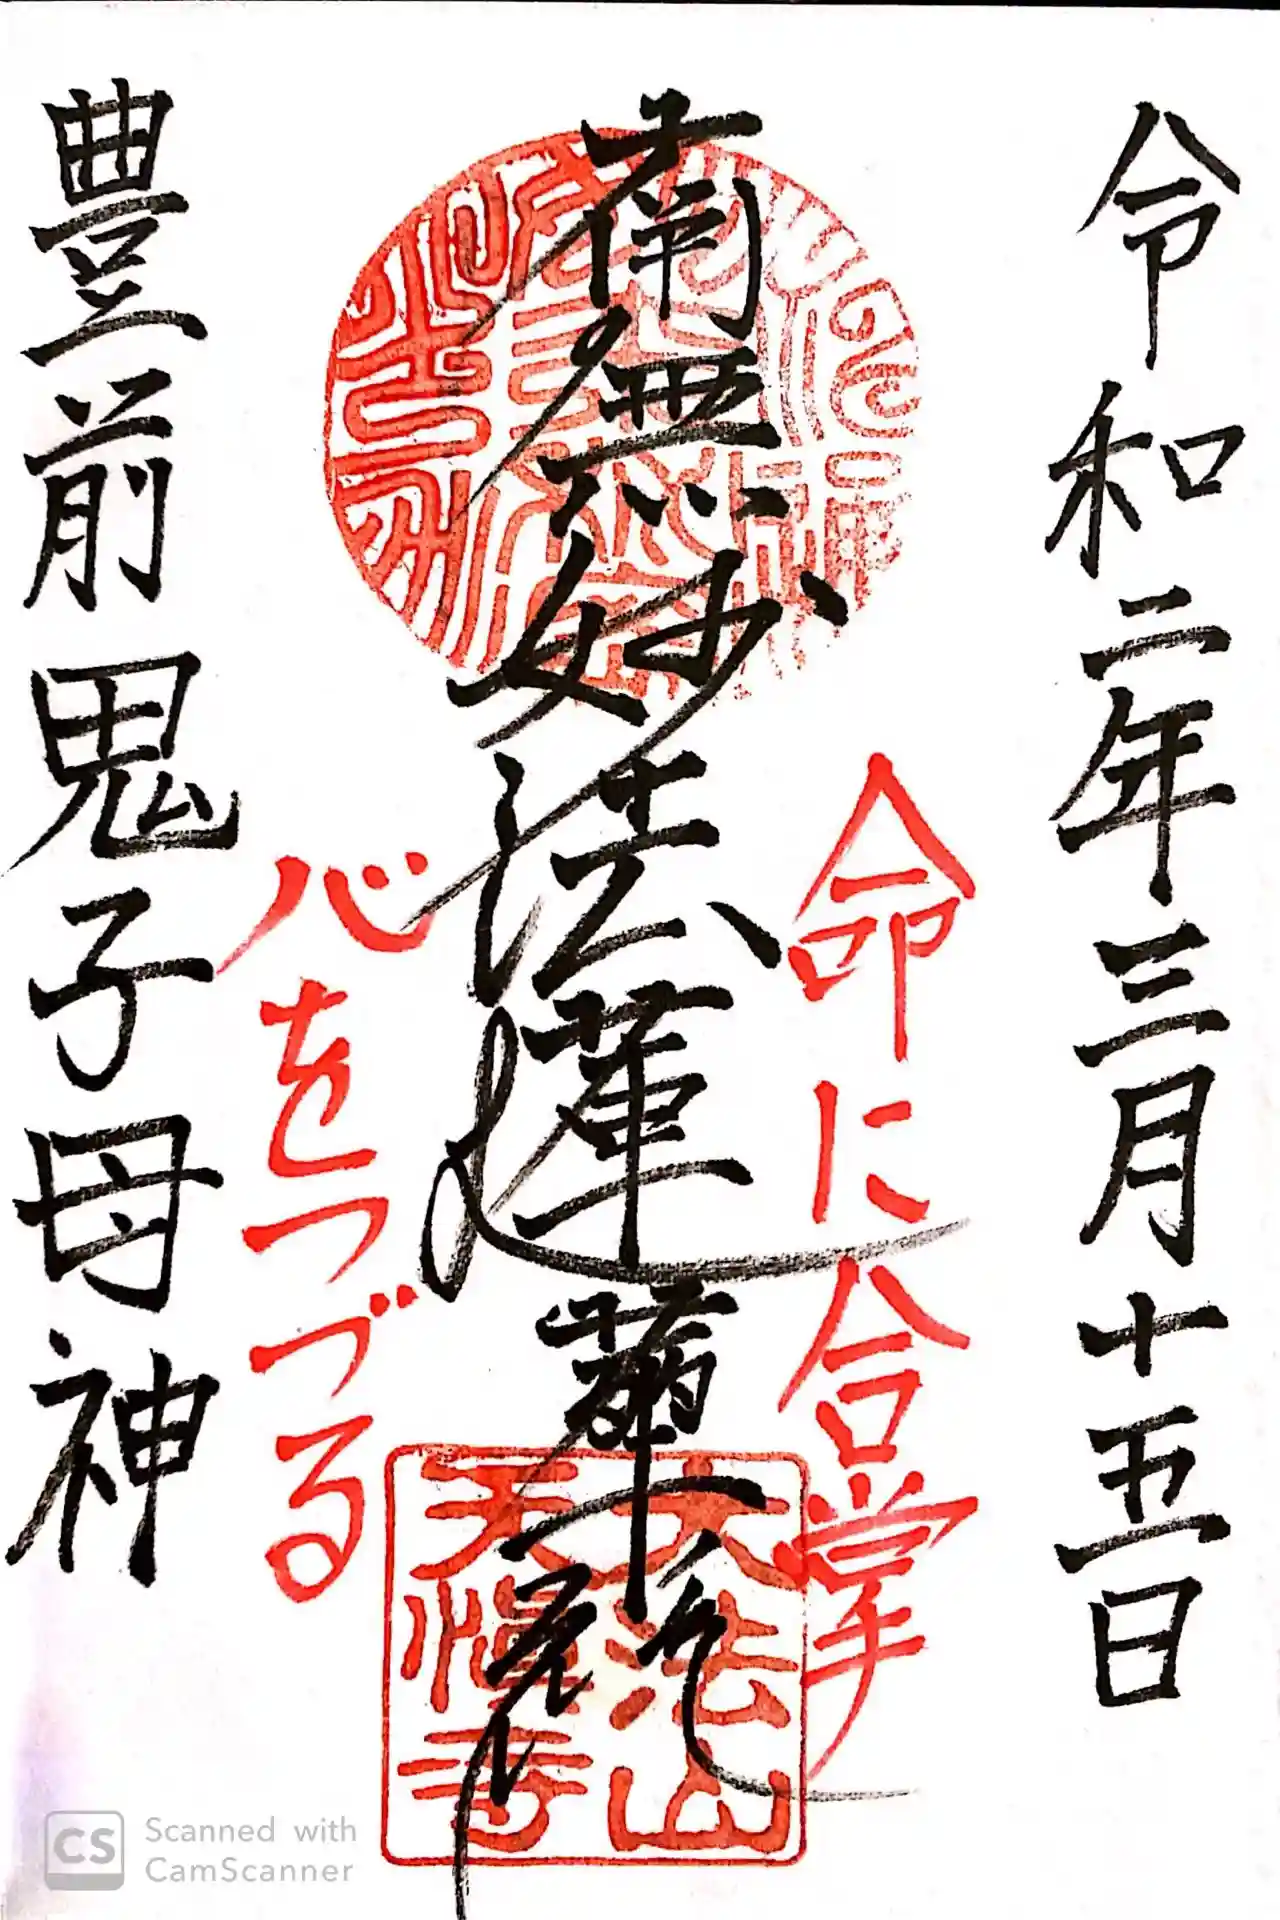 令和二年三月十五日
命に合掌
南無妙法蓮華経
心をつづる
豊前鬼子母神
大法山
天懂寺
Scanned with
CamScanner